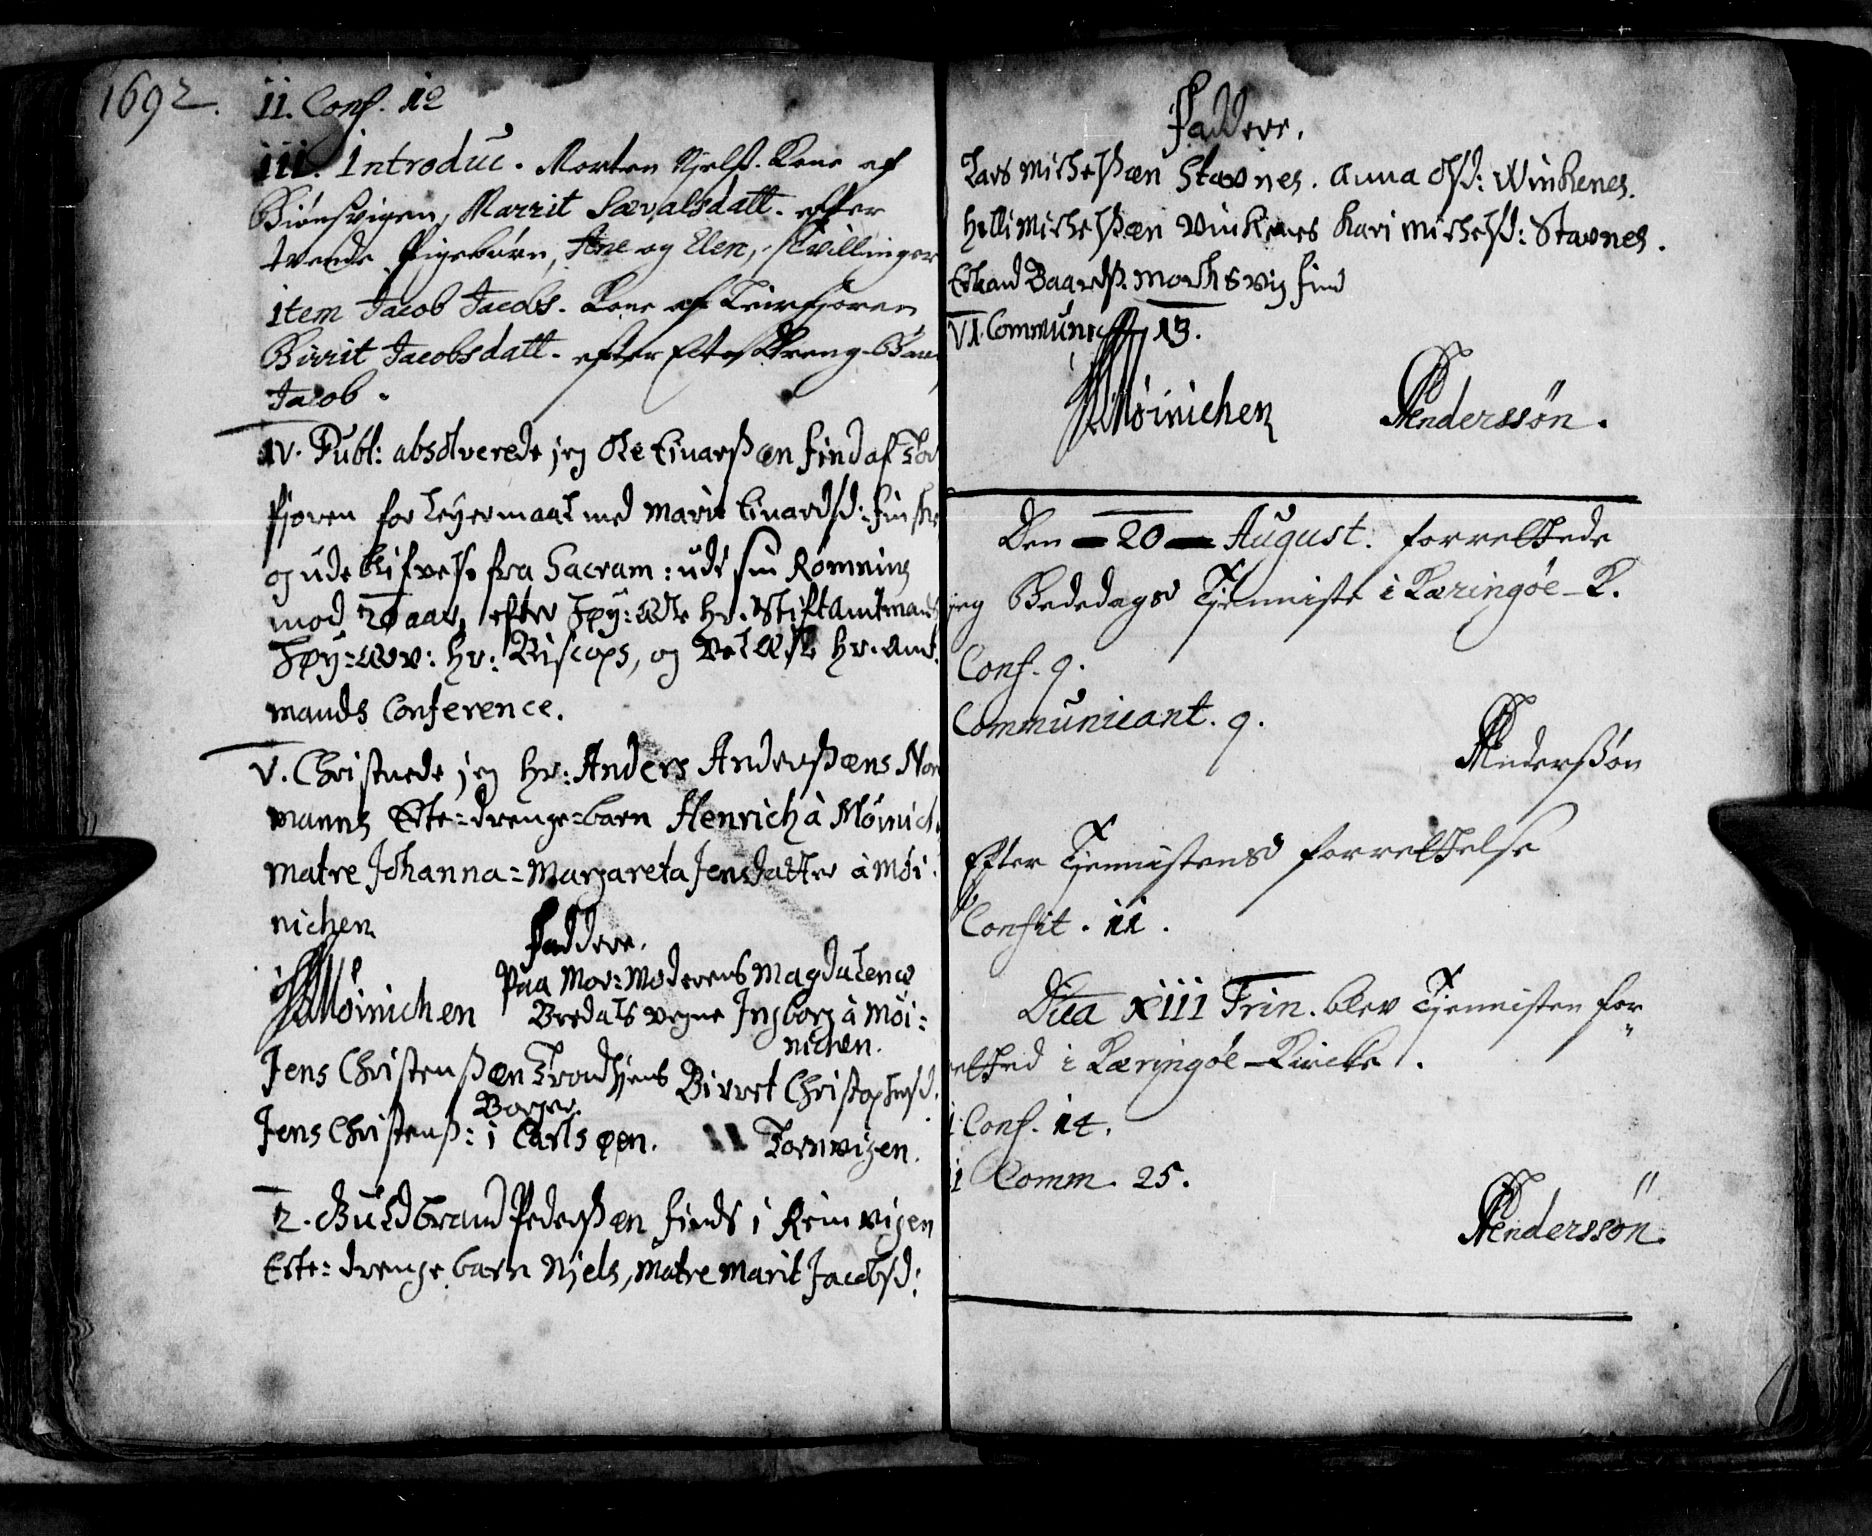 1692.
II. Conf. 10
III. Introduc. Morten Njelss. Kone af
Biönsvigen, Marrit Sævalsdatt. efter
tvende Pigebörn, Ane og Elen, Tvillinger
item Jacob Jacobs. Kone af Leirfjoren
Birrit Jacobsdatt. efter Ecte Dreng-Barn
Jacob.
IV. Publ: absolverede jeg Ole Einarssøn find af
fjoren for Leyermaal med Marit Einardsd: finske
og udeblifvelse fra Sacram: udi sin Rømning
mod 20 aar, efter Høy: Hr. Stiftamtmands
Høy: Hr: Biscops, og Hr. Amt-
mands Conference.
V. Christnede jeg Hr: Anders Anderssøns Nor
manns Ecte-drenge-barn Henrich à Möinich
matre Johanna-Margareta Jensdatter à Möi-
nichen
Faddere.
Paa Mor-Moderens Magdalenæ
Möinichen Bredals vegne Ingborg à Möi-
nichen.
Jens Christenssøn Trondhjems Birret Christophersd.
Borger.
Jens Christenss: i Carlsøen. 11 Tornvigen.
2. Guldbrand Pederssøn finds i Reinvigen
Ecte-drenge barn Njels, matre Marit Jacobsd:
Faddere.
Lars Michelssøn Stavnes. Anna Olsd: Winkenes.
Helli Michelssøn Vinkenes Kari Michelsd: Stavnes.
Baardss. find
VI. Communic 13.
Möinichen Anderssön.
Den 20 August. forrettede
jeg Bededags Tjenniste i Kæringöe-K.
Conf. 9.
Communicant. 9.
Anderssön
Efter Tjennistens forrettelse
Confit. 11.
Dica XIII Trin. blev Tjennisten for
rettед i Kæringöe-Kircke.
i Conf. 14.
ii Comm. 25.
Anderssön.